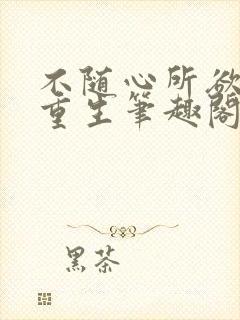 不随心所欲
重生筆趣閣
黑茶